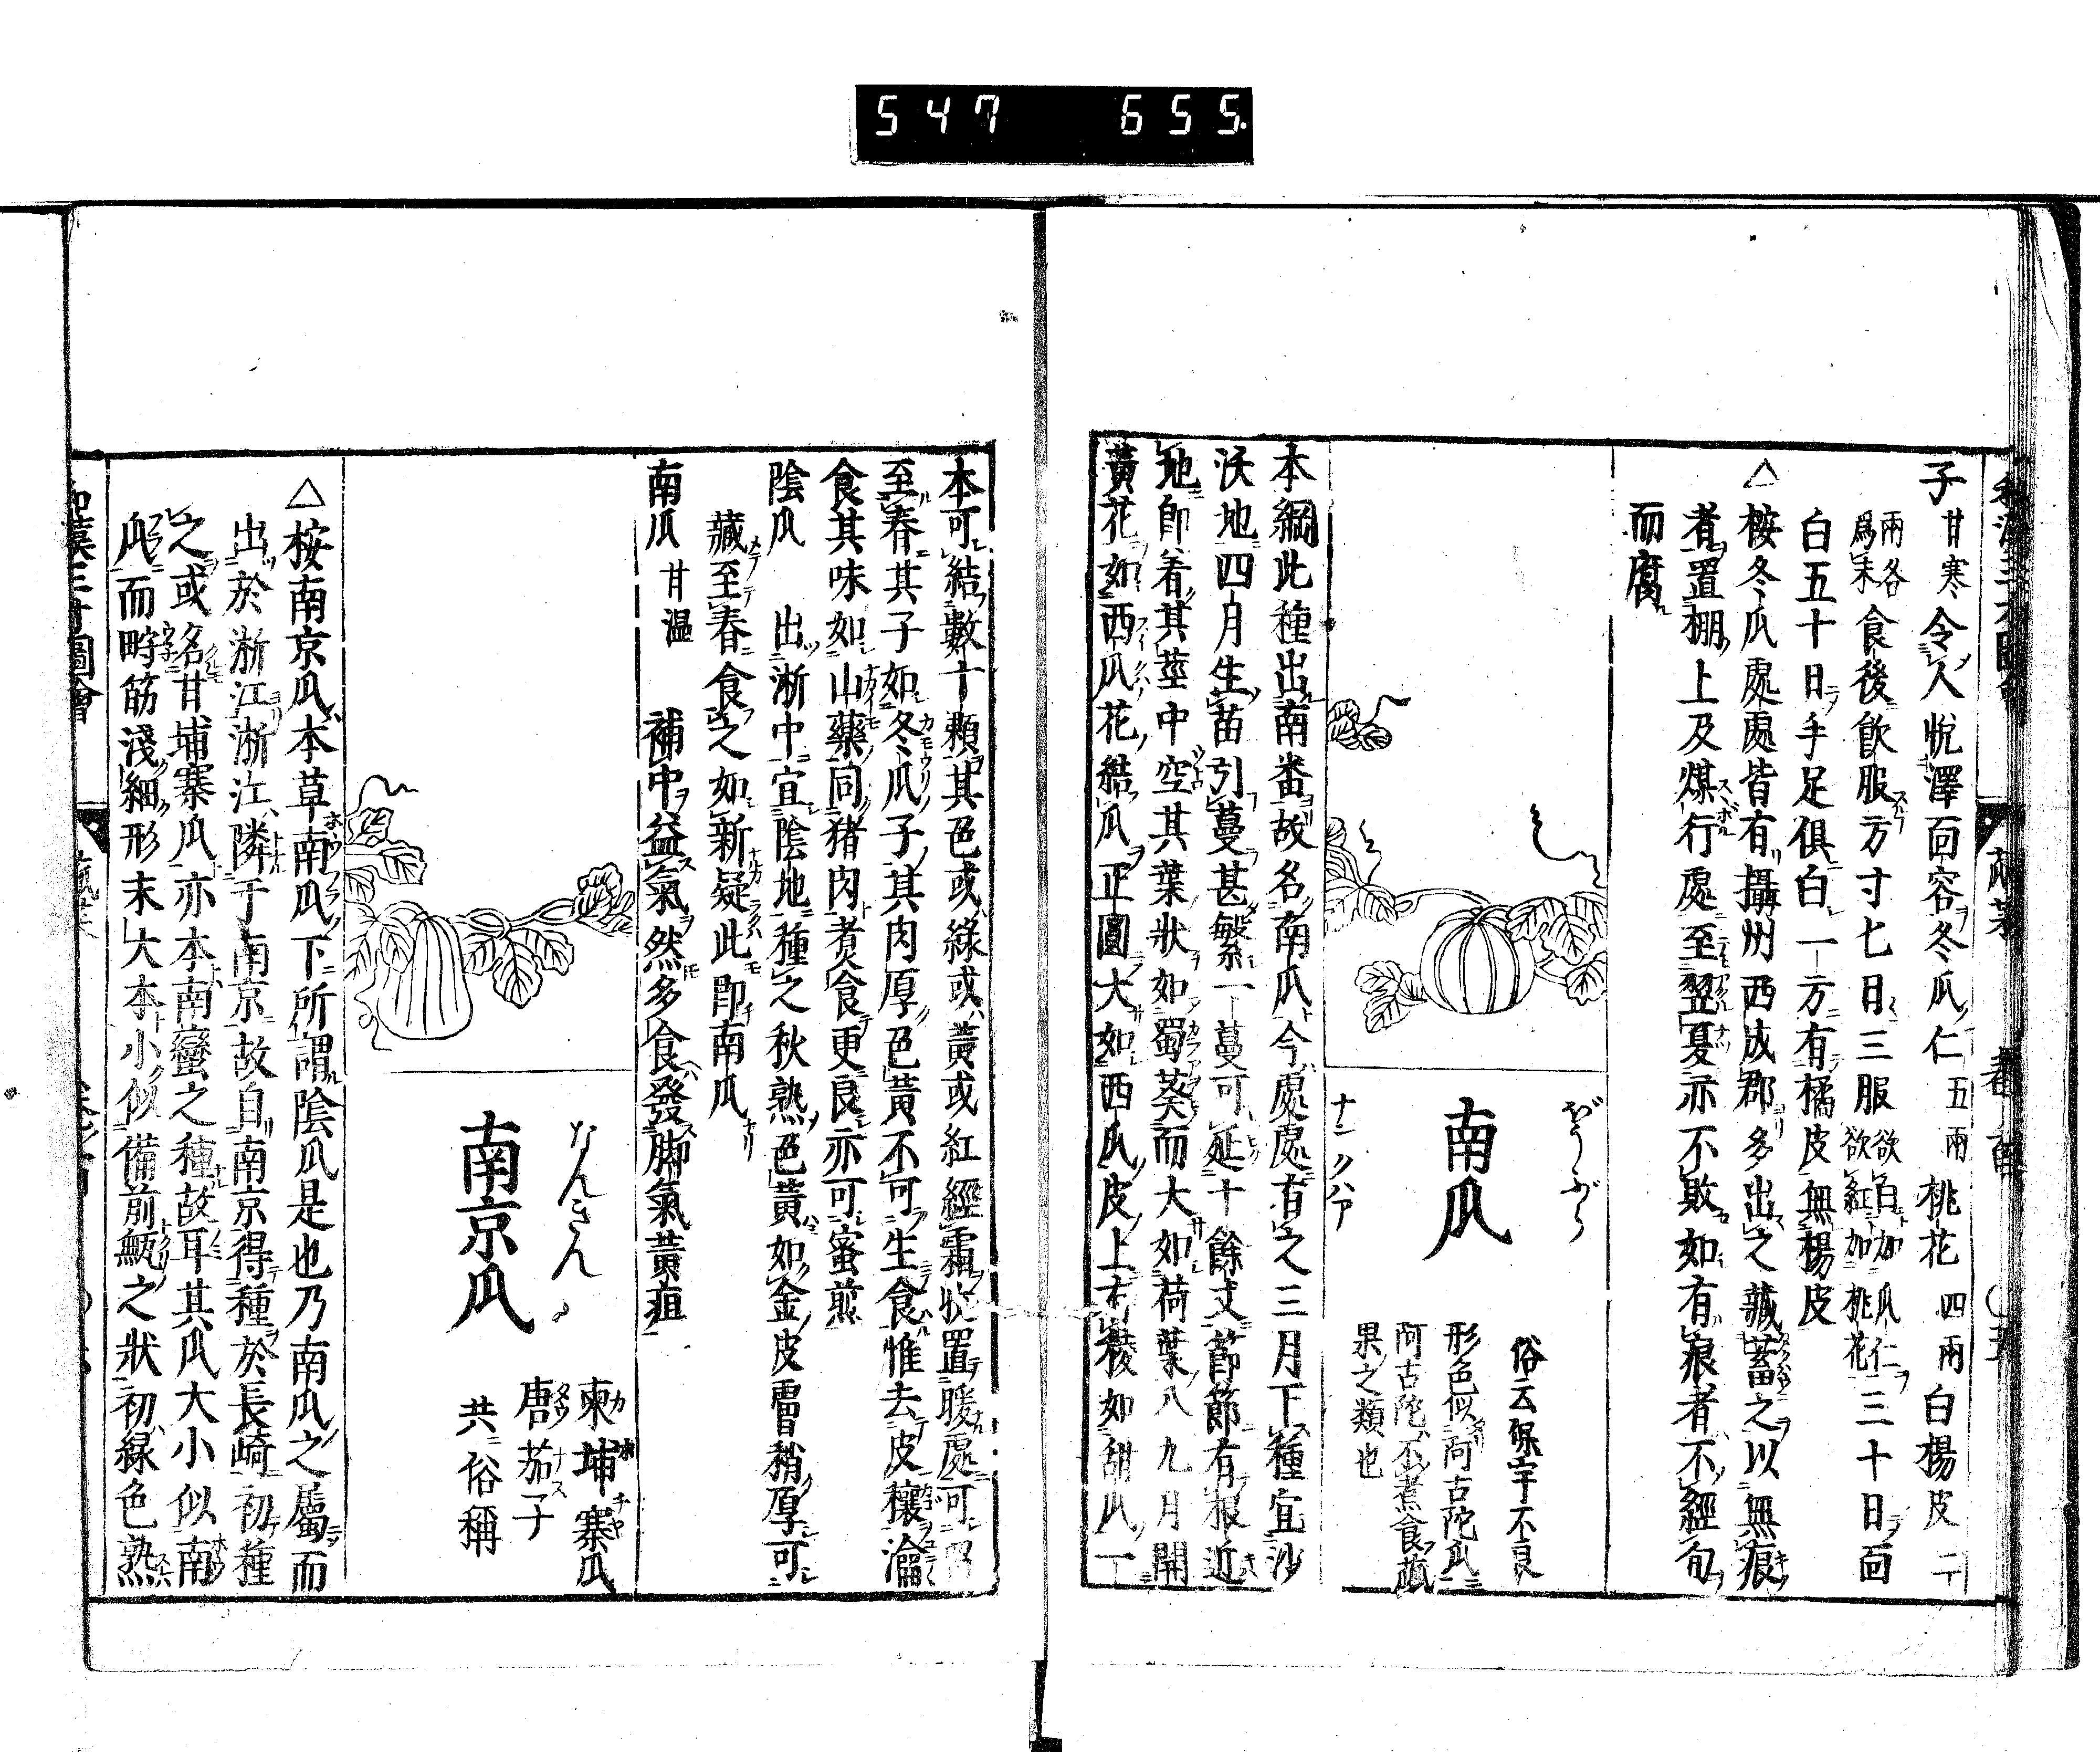 547 655
子 甘寒 令人悦澤面容冬瓜仁 五兩 桃花 四兩 白楊皮 二
兩各爲末 食後飲服方寸匕日三服 欲白加瓜仁欲紅加桃花 三十日面
白五十日手足俱白一方有橘皮無楊皮
△ 桉冬瓜處處皆有攝州西成郡多出之藏蓄之以無痕
者置棚上及煤行處至翌夏亦不敗如有痕者不經旬
而腐
ぼうぶら
南瓜
ナンクハア
俗云保宇不良
形色似阿古陀瓜
阿古陀不煮食蓏
果之類也
本綱此種出南畨故名南瓜今處處有之三月下種宜沙
沃地四月生苗引蔓甚繁一蔓可延十餘丈節節有根近
地即着其莖中空其葉狀如蜀葵而大如荷葉八九月開
黃花如西瓜花結瓜正圓大如西瓜皮上有稜如甜瓜一
本可結數十顆其色或綠或黃或紅經霜收置暖處可留
至春其子如冬瓜子其肉厚色黃不可生食惟去皮穰瀹
食其味如山藥同猪肉煮食更良亦可蜜煎
陰瓜 出浙中宜陰地種之秋熟色黃如金皮膚稍厚可
藏至春食之如新疑此即南瓜
南瓜 甘温 補中益氣然多食發脚氣黃疸
なんきん
南京瓜
柬埔寨瓜
唐茄子
共俗稱
△ 桉南京瓜本草南瓜下所謂陰瓜是也乃南瓜之屬而
出於浙江浙江隣于南京故自南京得種於長崎初種
之或名甘埔寨瓜亦本南蠻之種故耳其瓜大小似南
瓜而畤筋淺細形末大本小似備前甁之狀初綠色熟
和漢三才圖會